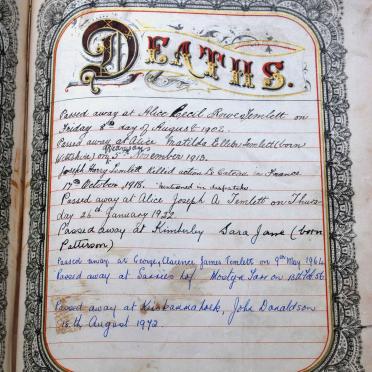 DEATHS.
Passed away at Alice Cecil Rowe Temlett on
Friday 8th day of August 1902.
Passed away at Alice Matilda Ellen Temlett (born
Wiltshire) on Wednesday 5th November 1913.
Joseph Harry Temlett Killed action Le Cateau in France
17th October 1918. Mentioned in dispatches
Passed away at Alice Joseph A. Temlett on Thurs-
day 26th January 1922.
Passed away at Kimberley Sara Jane (born
Patterson)
Passed away at George, Clarence James Temlett on 9th May 1964
Passed away at Mostyn on 13th Feb. 56
Passed away at Keiskammahoek, John Donaldson
18th August 1972.